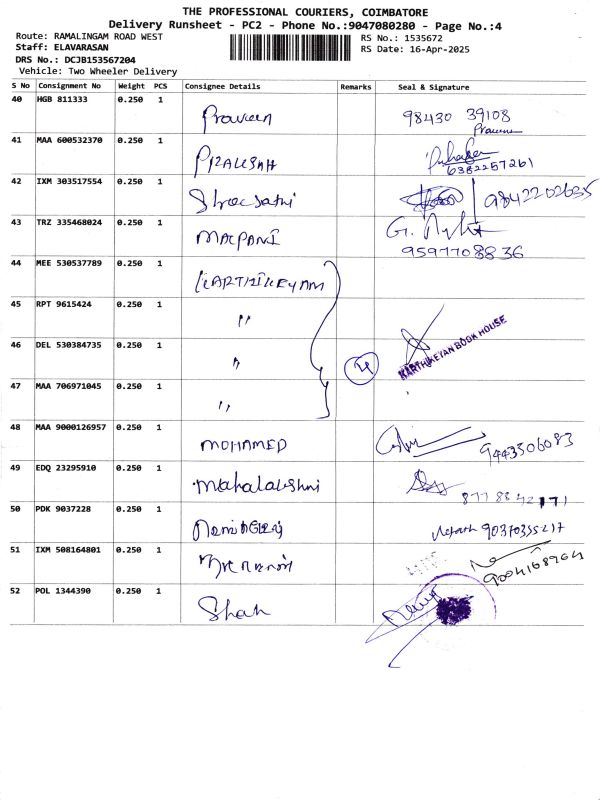 THE PROFESSIONAL COURIERS, COIMBATORE
Delivery Runsheet - PC2 - Phone No.:9047080280 - Page No.:4
Route: RAMALINGAM ROAD WEST RS No.: 1535672
Staff: ELAVARASAN RS Date: 16-Apr-2025
DRS No.: DCJB153567204
Vehicle: Two Wheeler Delivery
S No Consignment No Weight PCS Consignee Details Remarks Seal & Signature
40 HGB 811333 0.250 1 Praveen 98430 39108
Praveen
41 MAA 600532370 0.250 1 PRAKASH
6382257261
42 IXM 303517554 0.250 1 9842202635
43 TRZ 335468024 0.250 1 MALPANI
9597708836
44 MEE 530537789 0.250 1 KARTHIKEYAN
45 RPT 9615424 0.250 1 "
46 DEL 530384735 0.250 1 " 4 KARTHIKEYAN BOOK HOUSE
47 MAA 706971045 0.250 1 "
48 MAA 9000126957 0.250 1 MOHAMED 9443506083
49 EDQ 23295910 0.250 1 Mahalakshmi
8778842171
50 PDK 9037228 0.250 1 9037035527
51 IXM 508164801 0.250 1
52 POL 1344390 0.250 1 Shah